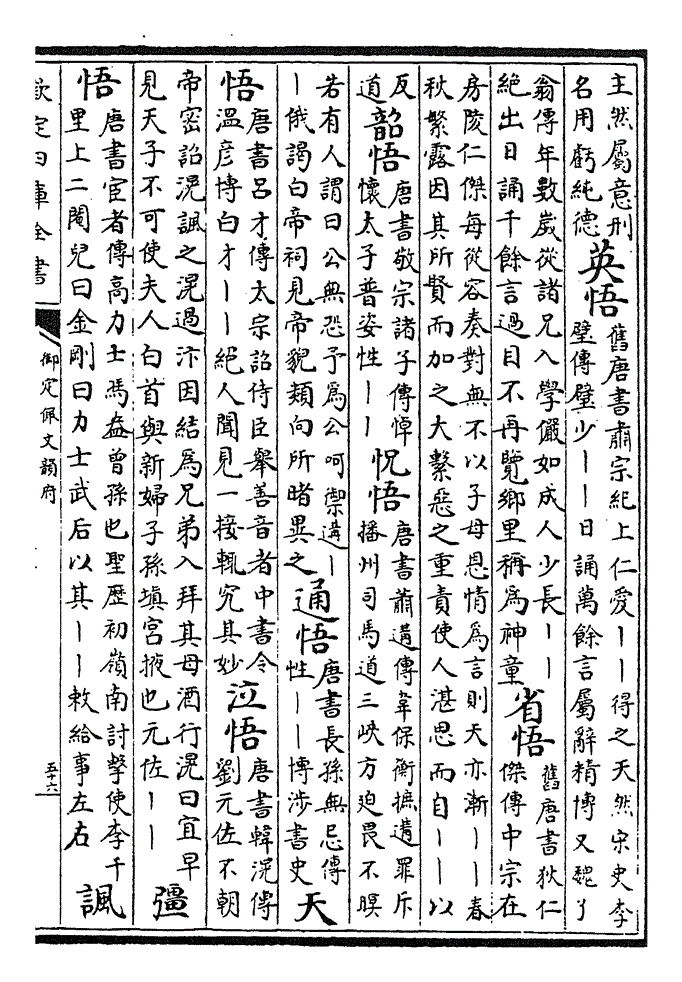 主然屬意刑
名用虧純德
英悟
舊唐書肅宗紀上仁愛丨丨得之天然宋史李
璧傳璧少丨丨日誦萬餘言屬辭精博又魏了
翁傳年數歲從諸兄入學儼如成人少長丨丨
絶出日誦千餘言過目不再覽鄉里稱為神童
省悟
舊唐書狄仁
傑傳中宗在
房陵仁傑每從容奏對無不以子母恩情為言則天亦漸丨丨春
秋繁露因其所賢而加之大繫惡之重責使人湛思而自丨丨以
反
道
韶悟
唐書敬宗諸子傳悼
懷太子普姿性丨丨
怳悟
唐書蕭遘傳韋保衡摭遘罪斥
播州司馬道三峽方迫畏不瞑
若有人謂曰公無恐予為公呵禦遘丨
丨俄謁白帝祠見帝貌類向所睹異之
通悟
唐書長孫無忌傳
性丨丨博涉書史
天
悟
唐書呂才傳太宗詔侍臣舉善音者中書令
溫彦博白才丨丨絶人聞見一接輒究其妙
泣悟
唐書韓滉傳
劉元佐不朝
帝密詔滉諷之滉過汴因結為兄弟入拜其母酒行滉曰宜早
見天子不可使夫人白首與新婦子孫填宮掖也元佐丨丨
彊
悟
唐書宦者傳高力士馮盎曾孫也聖歴初嶺南討擊使李千
里上二閹兒曰金剛曰力士武后以其丨丨敕給事左右
諷
欽定四庫全書
御定佩文韻府
五十六